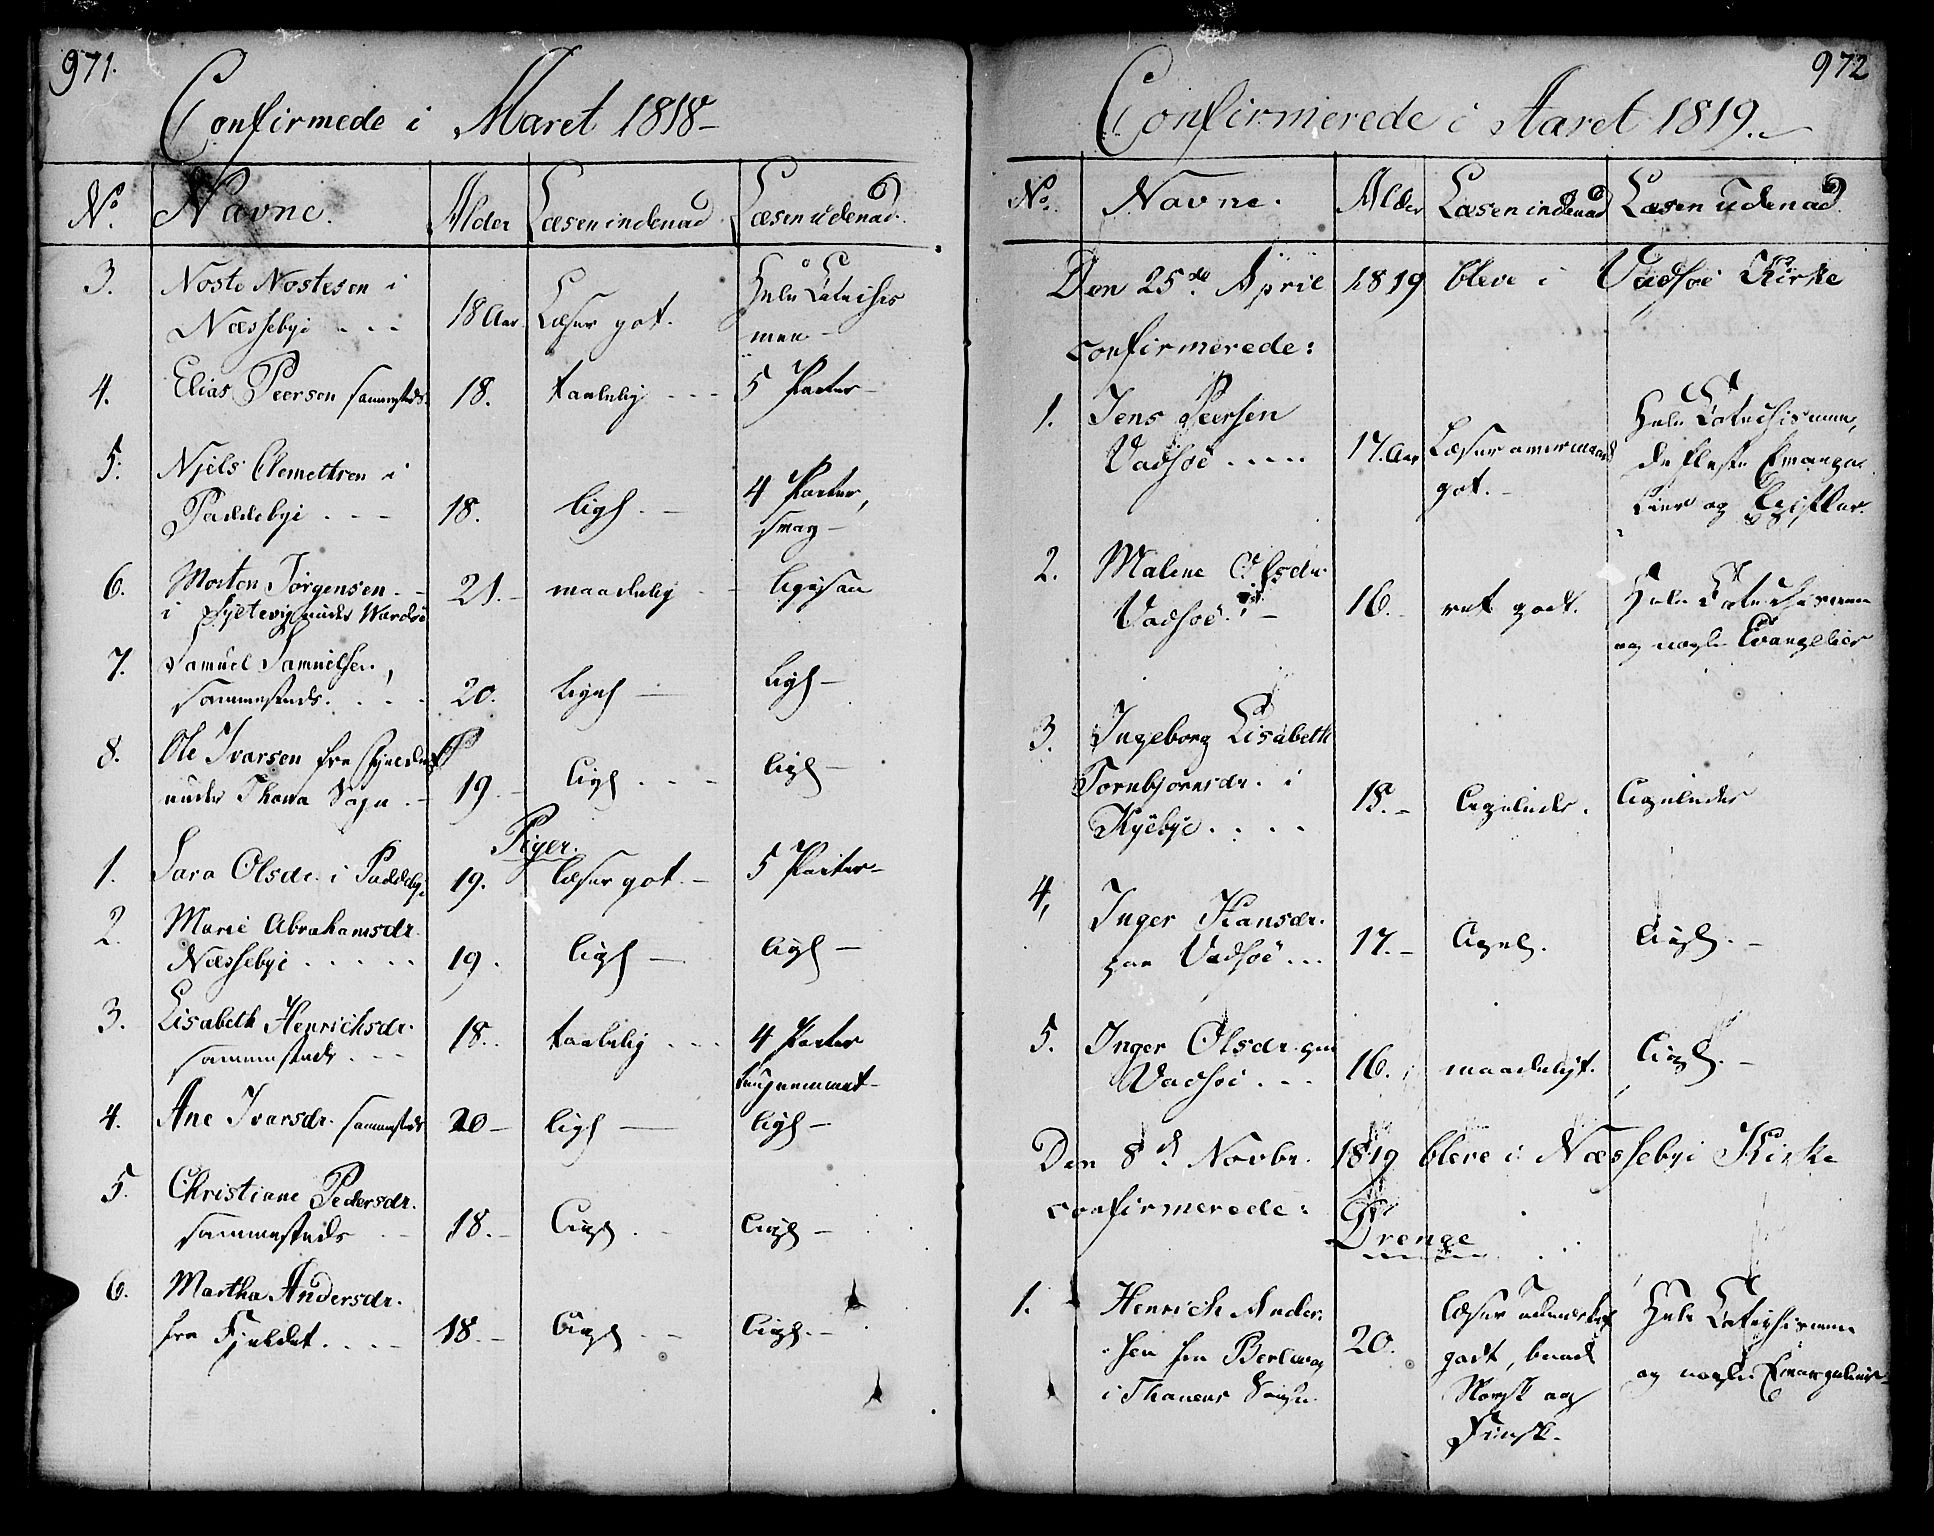 971.
Confirmede i Aaret 1818
No. Navne. Alder Læsen indenad Læsen udenad.
3. Noste Nostesen i
Næssebye 18 Aar. Læser got. Hele Catechis
men
4. Elias Peersen sammesteds. 18. taalelig 5 Parter
5. Njels Clemettsen i
Paddebye 18. ligs. 4 Parter,
svag
6. Morten Jørgensen
i Syltevig under Wardøe 21. maadelig ligesaa
7. Samuel Samuelsen,
sammesteds. 20. ligel. ligs
8. Ole Ivarsen fra Fjeldet
under Thana Sogn 19. ligs. ligs
Piger.
1. Sara Olsdr. i Paddebye 19. læser got. 5 Parter
2. Marie Abrahamsdr.
Næssebye 19. ligs ligs
3. Lisabeth Henrichsdr.
sammesteds 18. taalelig 4 Parter
tungnemmet
4. Ane Ivarsdr. sammesteds 20 ligs ligs
5. Christiane Pedersdr.
sammesteds 18. Ligs. Ligs
6. Martha Andersdr.
fra Fjeldet 18. Ligs. Ligs.
972
Confirmerede i Aaret 1819.
No. Navne. Alder Læsen indenad Læsen udenad
Den 25de April 1819 bleve i Vadsøe Kirke
confirmerede:
1. Jens Peersen
Vadsøe 17. Aar Læser
got. Hele Catechismen,
de fleste Evange
lier og Epistler.
2. Malene Olsdr.
Vadsøe. 16. ret godt. Hele Catechismen
og nogle Evangelier
3. Ingeborg Lisabeth
Tornbjørnsdr. i
Kyebye 18. Ligeledes. Ligeledes
4, Inger Hansdr.
paa Vadsøe 17. Ligel. Ligs.
5. Inger Olsdr. paa
Vadsøe 16. maadeligt. Ligs.
Den 8d. Novbr. 1819 bleve i Næssebye Kirke
confirmerede: Drenge
1. Henrich Ander
sen fra Berlevog
i Thanens Sogn 20. læser udmærket
godt, baade
Norsk og
Finsk. Hele Catechismen
og nogle Evangelier